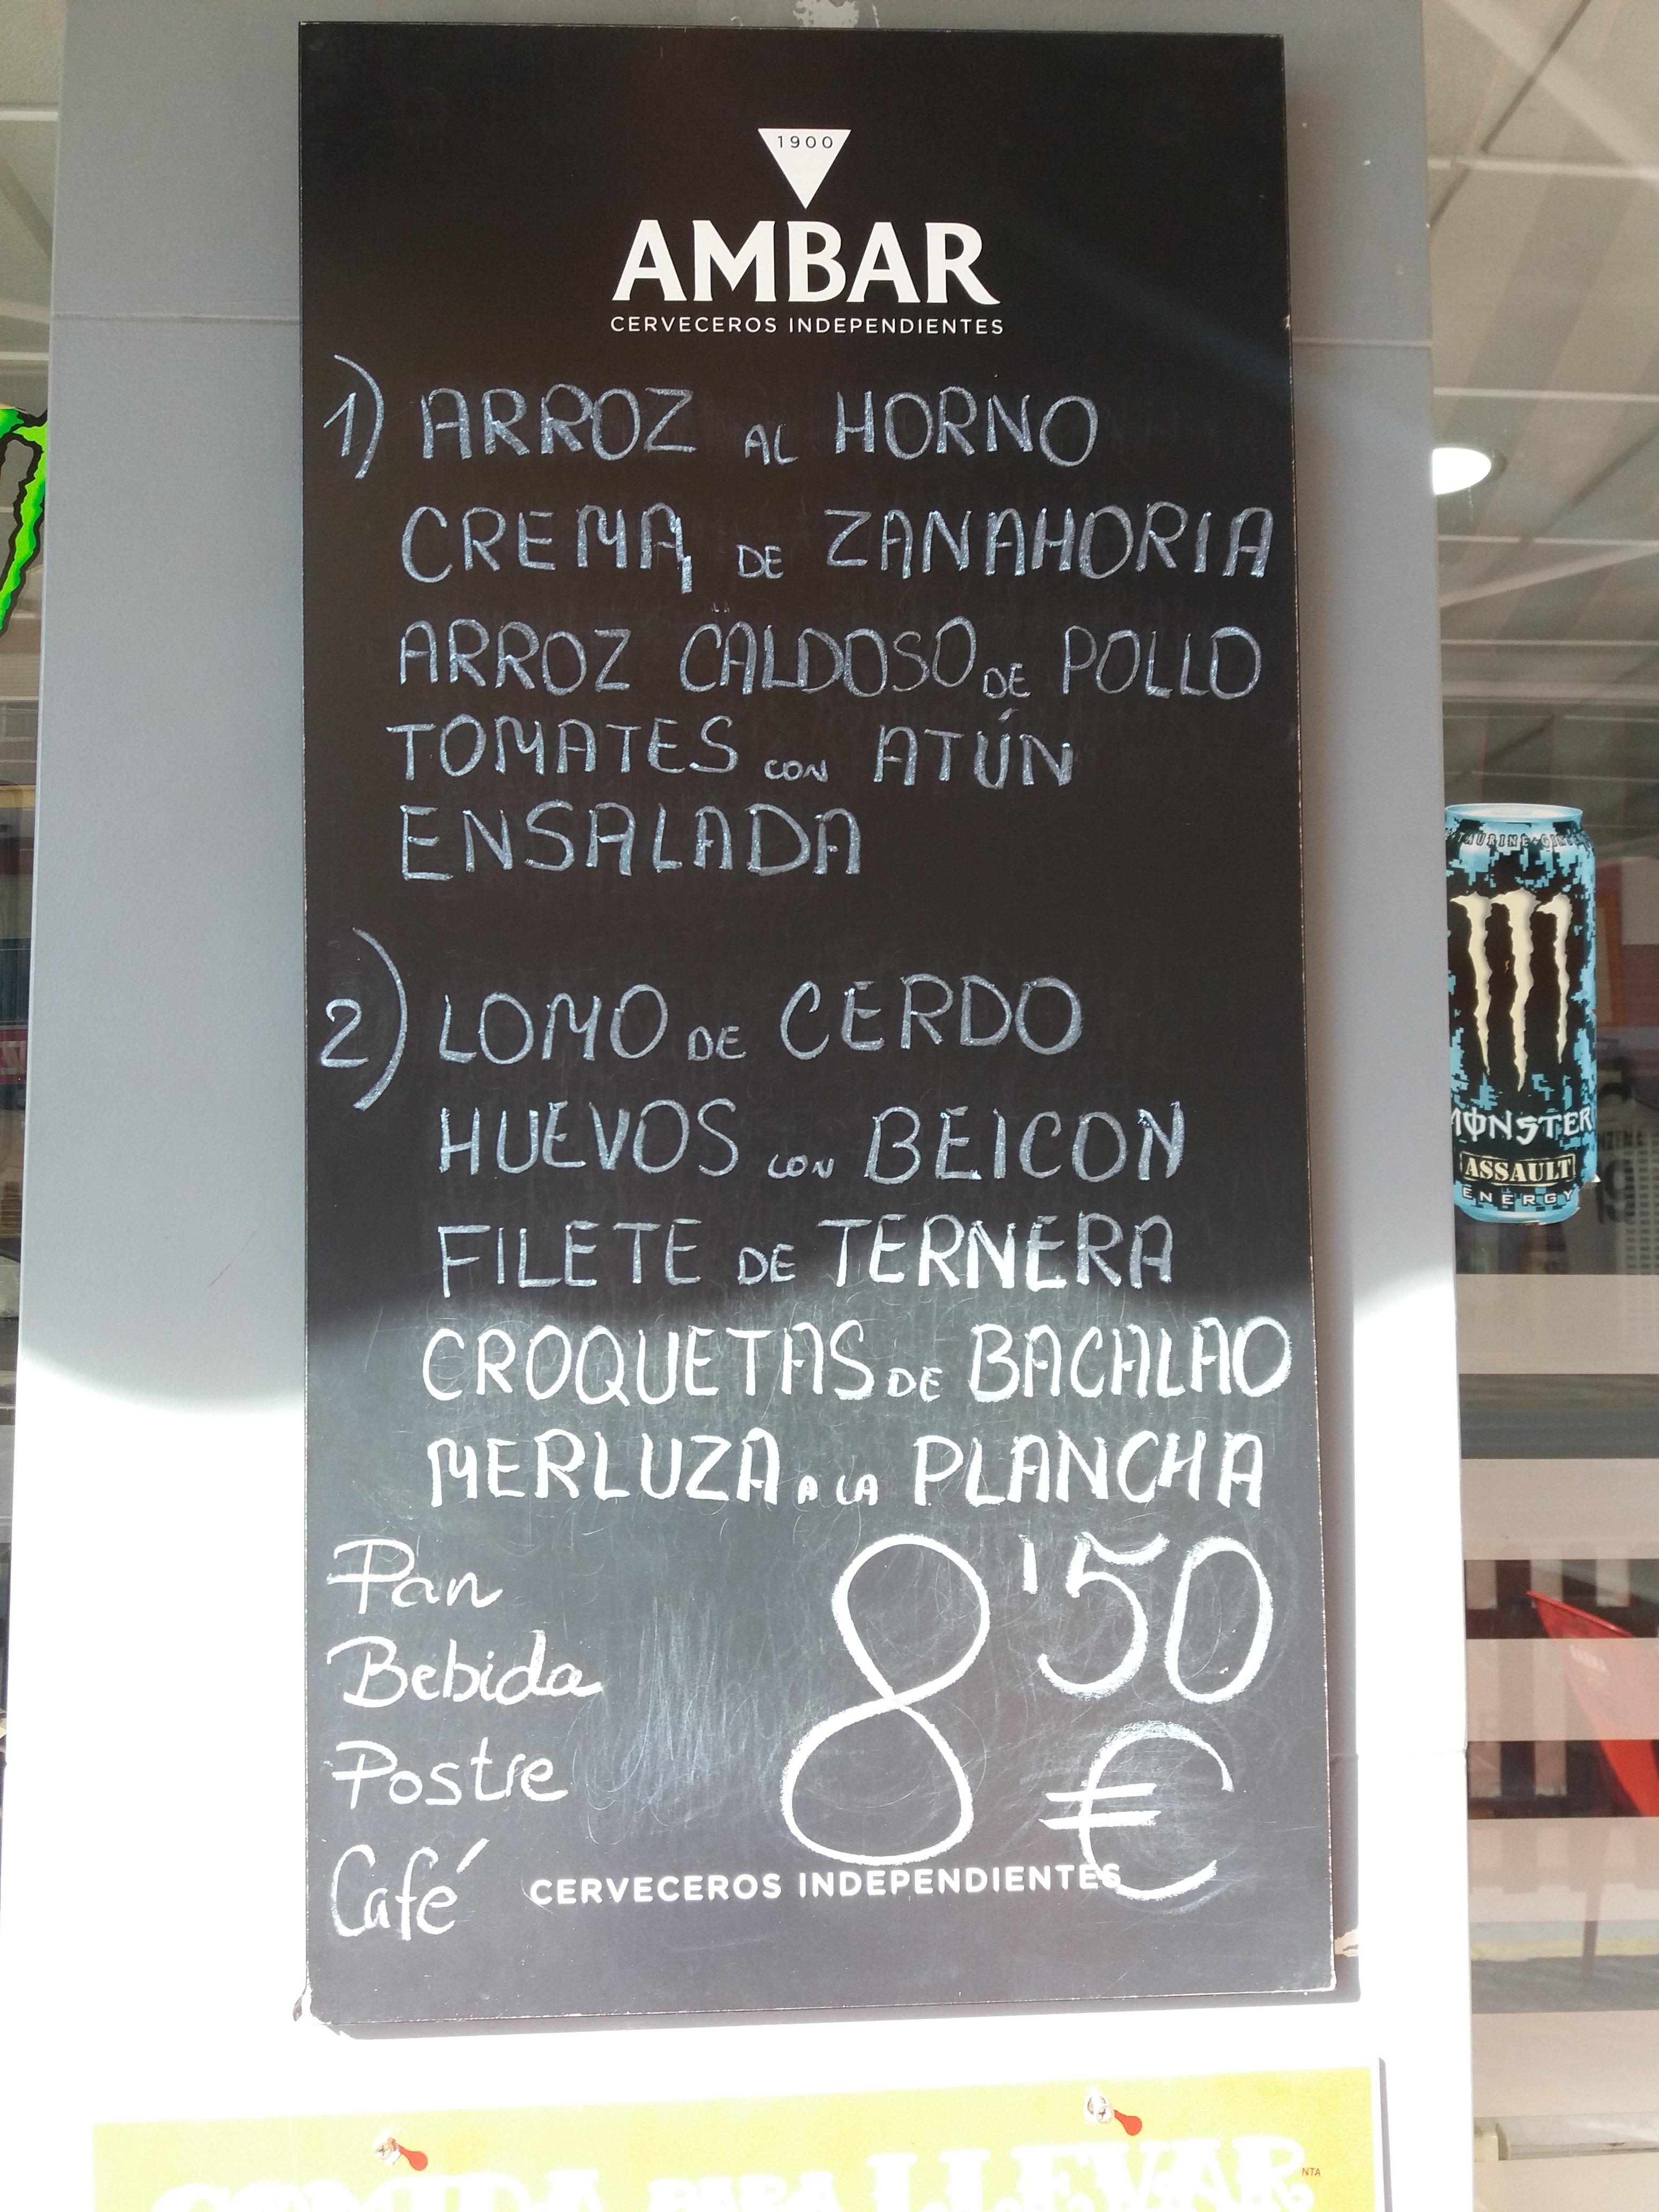 1900
AMBAR
CERVECEROS INDEPENDIENTES
1) ARROZ AL HORNO
CREMA DE ZANAHORIA
ARROZ CALDOSO DE POLLO
TOMATES CON ATÚN
ENSALADA
2) LOMO DE CERDO
HUEVOS CON BEICON
FILETE DE TERNERA
CROQUETAS DE BACALAO
MERLUZA A LA PLANCHA
Pan
Bebida
Postre
Café
8'50
€
CERVECEROS INDEPENDIENTES
MONSTER
ASSAULT
ENERGY
COMIDA PARA LLEVAR